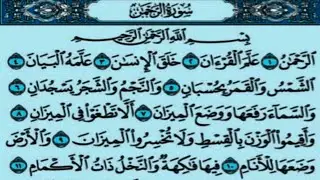 سُورَةُ الرَّحْمَٰن
بِسْمِ اللَّهِ الرَّحْمَٰنِ الرَّحِيمِ
الرَّحْمَٰنُ ١ عَلَّمَ الْقُرْءَانَ ٢ خَلَقَ الْإِنسَانَ ٣ عَلَّمَهُ الْبَيَانَ ٤
الشَّمْسُ وَالْقَمَرُ بِحُسْبَانٍ ٥ وَالنَّجْمُ وَالشَّجَرُ يَسْجُدَانِ ٦
وَالسَّمَاءَ رَفَعَهَا وَوَضَعَ الْمِيزَانَ ٧ أَلَّا تَطْغَوْا فِي الْمِيزَانِ ٨
وَأَقِيمُوا الْوَزْنَ بِالْقِسْطِ وَلَا تُخْسِرُوا الْمِيزَانَ ٩ وَالْأَرْضَ
وَضَعَهَا لِلْأَنَامِ ١٠ فِيهَا فَاكِهَةٌ وَالنَّخْلُ ذَاتُ الْأَكْمَامِ ١١